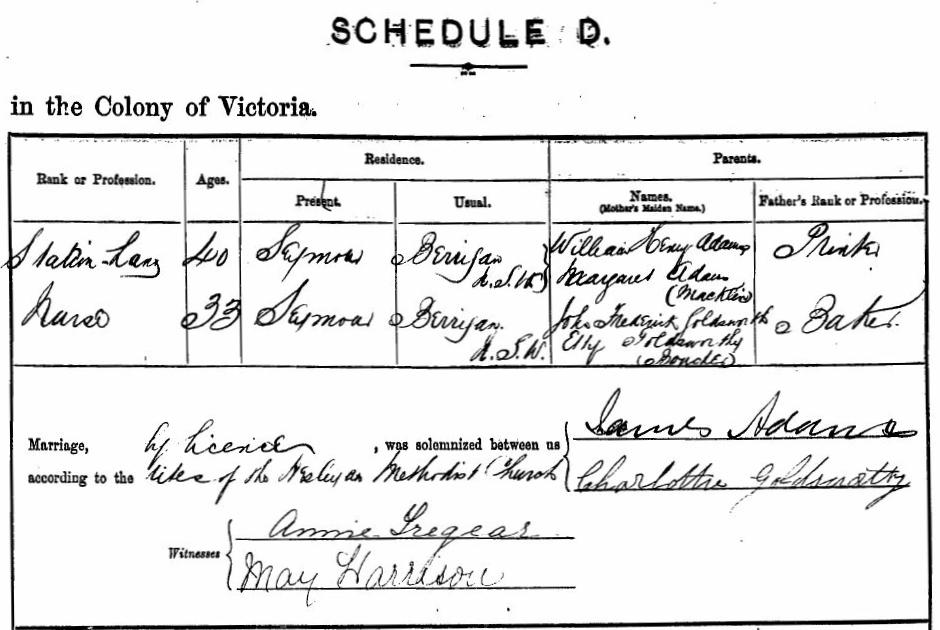 SCHEDULE D.
in the Colony of Victoria.
Rank or Profession. Ages. Residence. Parents.
Present. Usual. Names. (Mother's Maiden Name.) Father's Rank or Profession.
Station 40 Seymour Berrigan N.S.W. William Henry Adams Margaret Adams Printer
Nurse 33 Seymour Berrigan N.S.W. John Frederick Goldsworthy Goldsworthy Baker.
Marriage, by licence , was solemnized between us James Adams
according to the rites of the Wesleyan Methodist Church Charlotte Goldsworthy
Witnesses Annie Tregear
May Harrison